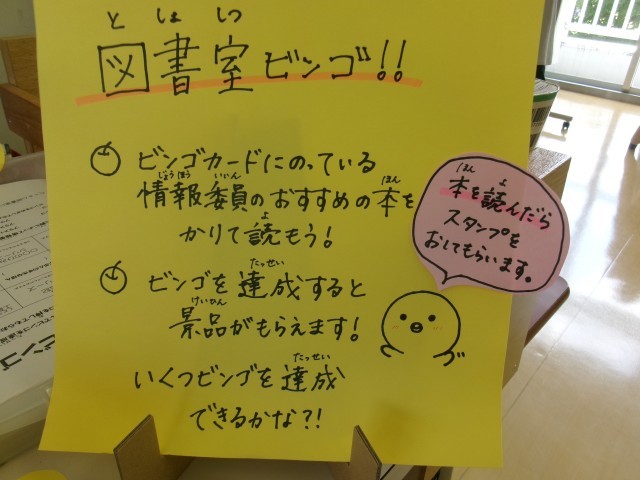 としょしつ
図書室ビンゴ!!
ビンゴカードにのっている
じょうほう いいん ほん
情報委員のおすすめの本を
よ
かりて読もう!
たっせい
ビンゴを達成すると
けいひん
景品がもらえます!
たっせい
いくつビンゴを達成
できるかな?!
ほん よ
本を読んだら
スタンプを
おしてもらいます。
ビンゴ